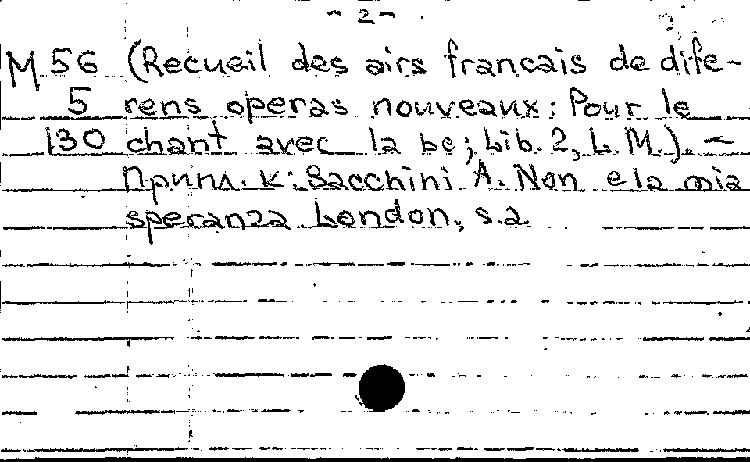 - 2 -
М 56 (Recueil des airs francais de dife-
5 rens operas nouveaux: Pour le
130 chant avec la bc; Lib. 2, L. M.). -
Припл. к: Sacchini A. Non e la mia
speranza London, s.a